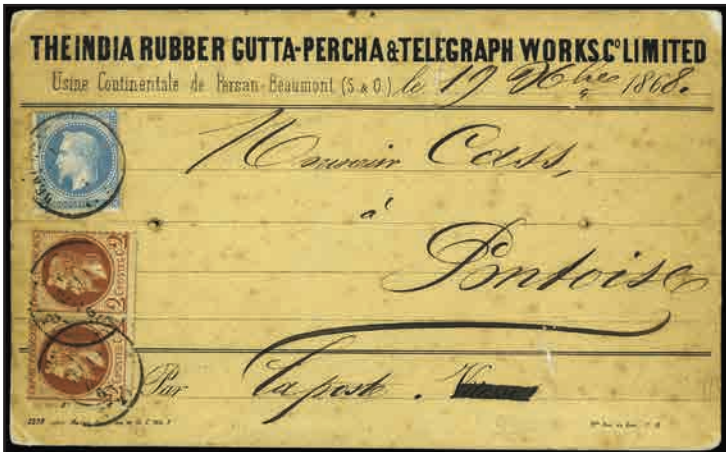 THE INDIA RUBBER GUTTA-PERCHA & TELEGRAPH WORKS Cº LIMITED
Usine Continentale de Persan-Beaumont (S. & O.) le 19 Xbre 1868.
Monsieur Cass,
à
Pontoise
Par la poste.